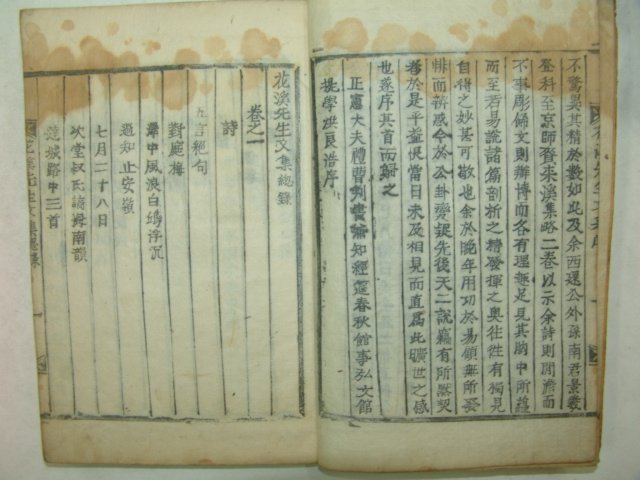 不驚異其精於數如此及余西還公外孫南君景羲
登科至京師賚來溪集略二卷以示余詩則閒澹而
不事彫餙文則辨博而各有理趣足見其胸中所蘊
而至若易說諸篇剖析之精發揮之奧往往有獨見
自得之妙甚可敬也余於晩年用功於易願無所發
悱而辨惑今於公卦變提先後天二說竊有所默契
者於是乎益恨當日未及相見而直爲此曠世之感
也遂序其首而歸之
正憲大夫禮曹判書兼知經筵春秋館事弘文館
提學洪良浩序
花溪先生文集總錄
卷之一
詩
五言絕句
對庭梅
舟中風浪白鷗浮沉
過知止安嶺
七月二十八日
次堂叔氏謫海南韻
城路中三首
花溪先生文集總錄